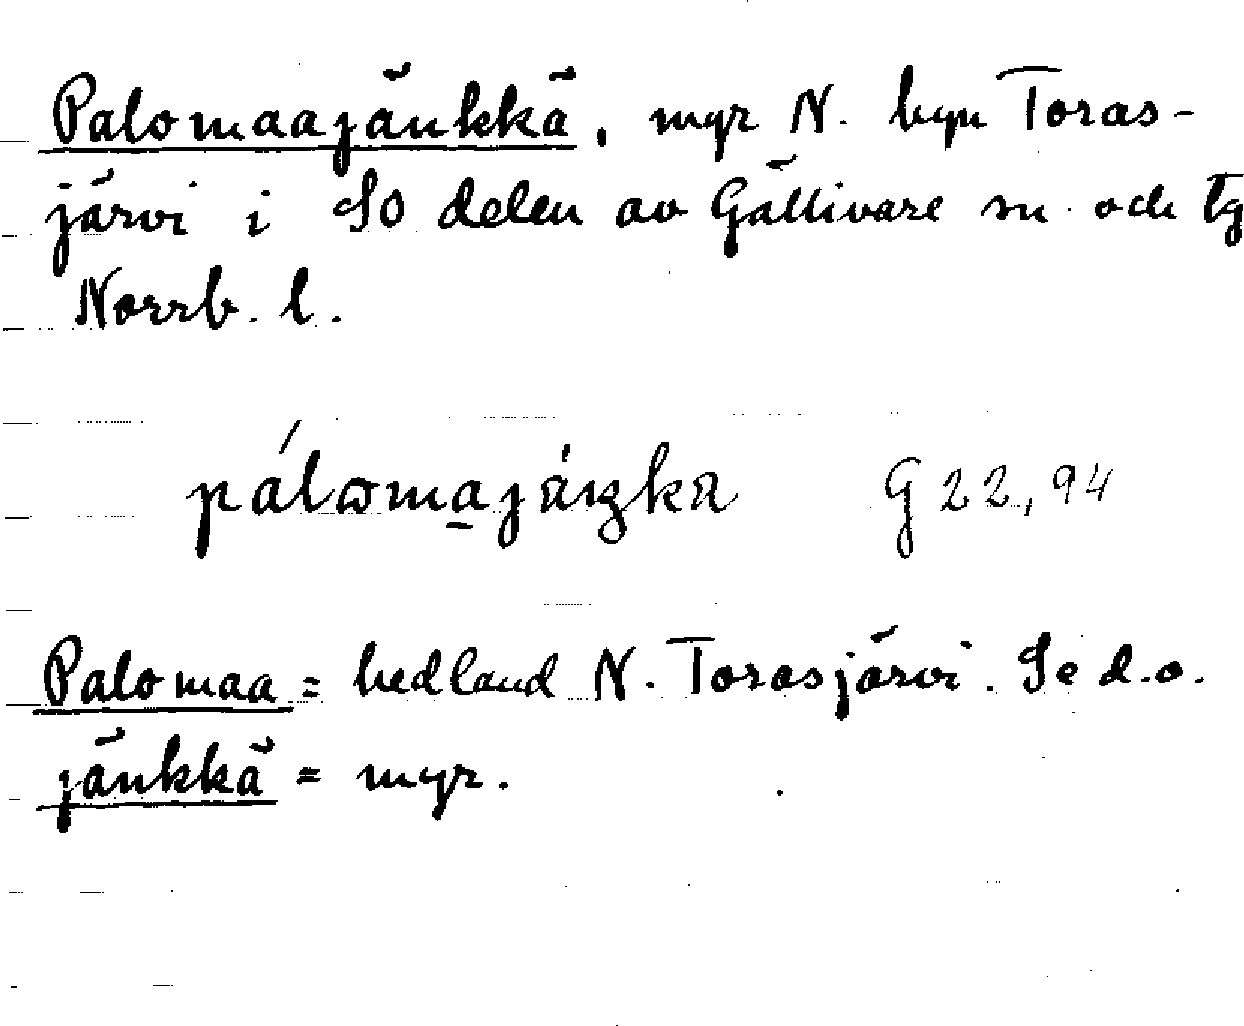 Palomaajänkkä, myr N. byn Toras-
järvi i SO delen av Gällivare sn och tg
Norrb. l.
pálωma̱jáŋka G 22,94
Palomaa = hedland N. Torasjärvi. Se d.o.
jänkkä = myr.